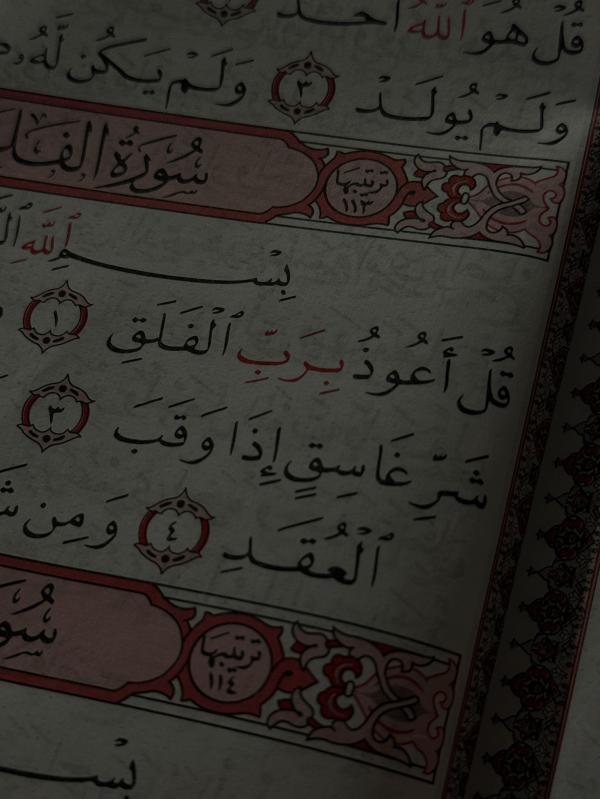 قُلْ هُوَ ٱللَّهُ أَحَدٌ
وَلَمْ يُولَدْ ٣ وَلَمْ يَكُن لَّهُۥ
سُورَةُ الفَلَ ترتيبها ١١٣
بِسْمِ ٱللَّهِ
قُلْ أَعُوذُ بِرَبِّ ٱلْفَلَقِ ١
شَرِّ غَاسِقٍ إِذَا وَقَبَ ٣
ٱلْعُقَدِ ٤ وَمِن
ترتيبها ١١٤
بِسْ